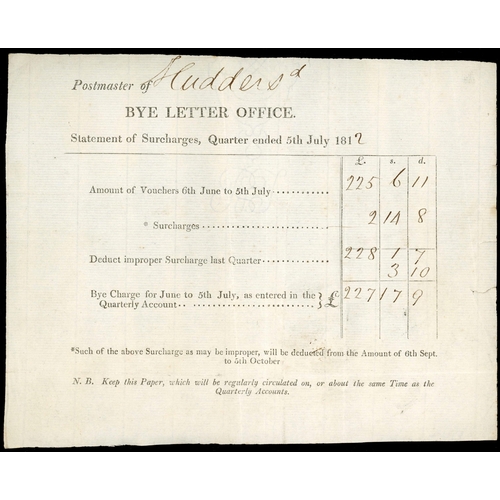 Postmaster of Hudders d
BYE LETTER OFFICE.
Statement of Surcharges, Quarter ended 5th July 1812
£. s. d.
Amount of Vouchers 6th June to 5th July 225 6 11
* Surcharges 2 14 8
228 1 7
Deduct improper Surcharge last Quarter 3 10
Bye Charge for June to 5th July, as entered in the
Quarterly Account } £ 227 17 9
*Such of the above Surcharge as may be improper, will be deducted from the Amount of 6th Sept.
to 5th October
N. B. Keep this Paper, which will be regularly circulated on, or about the same Time as the
Quarterly Accounts.